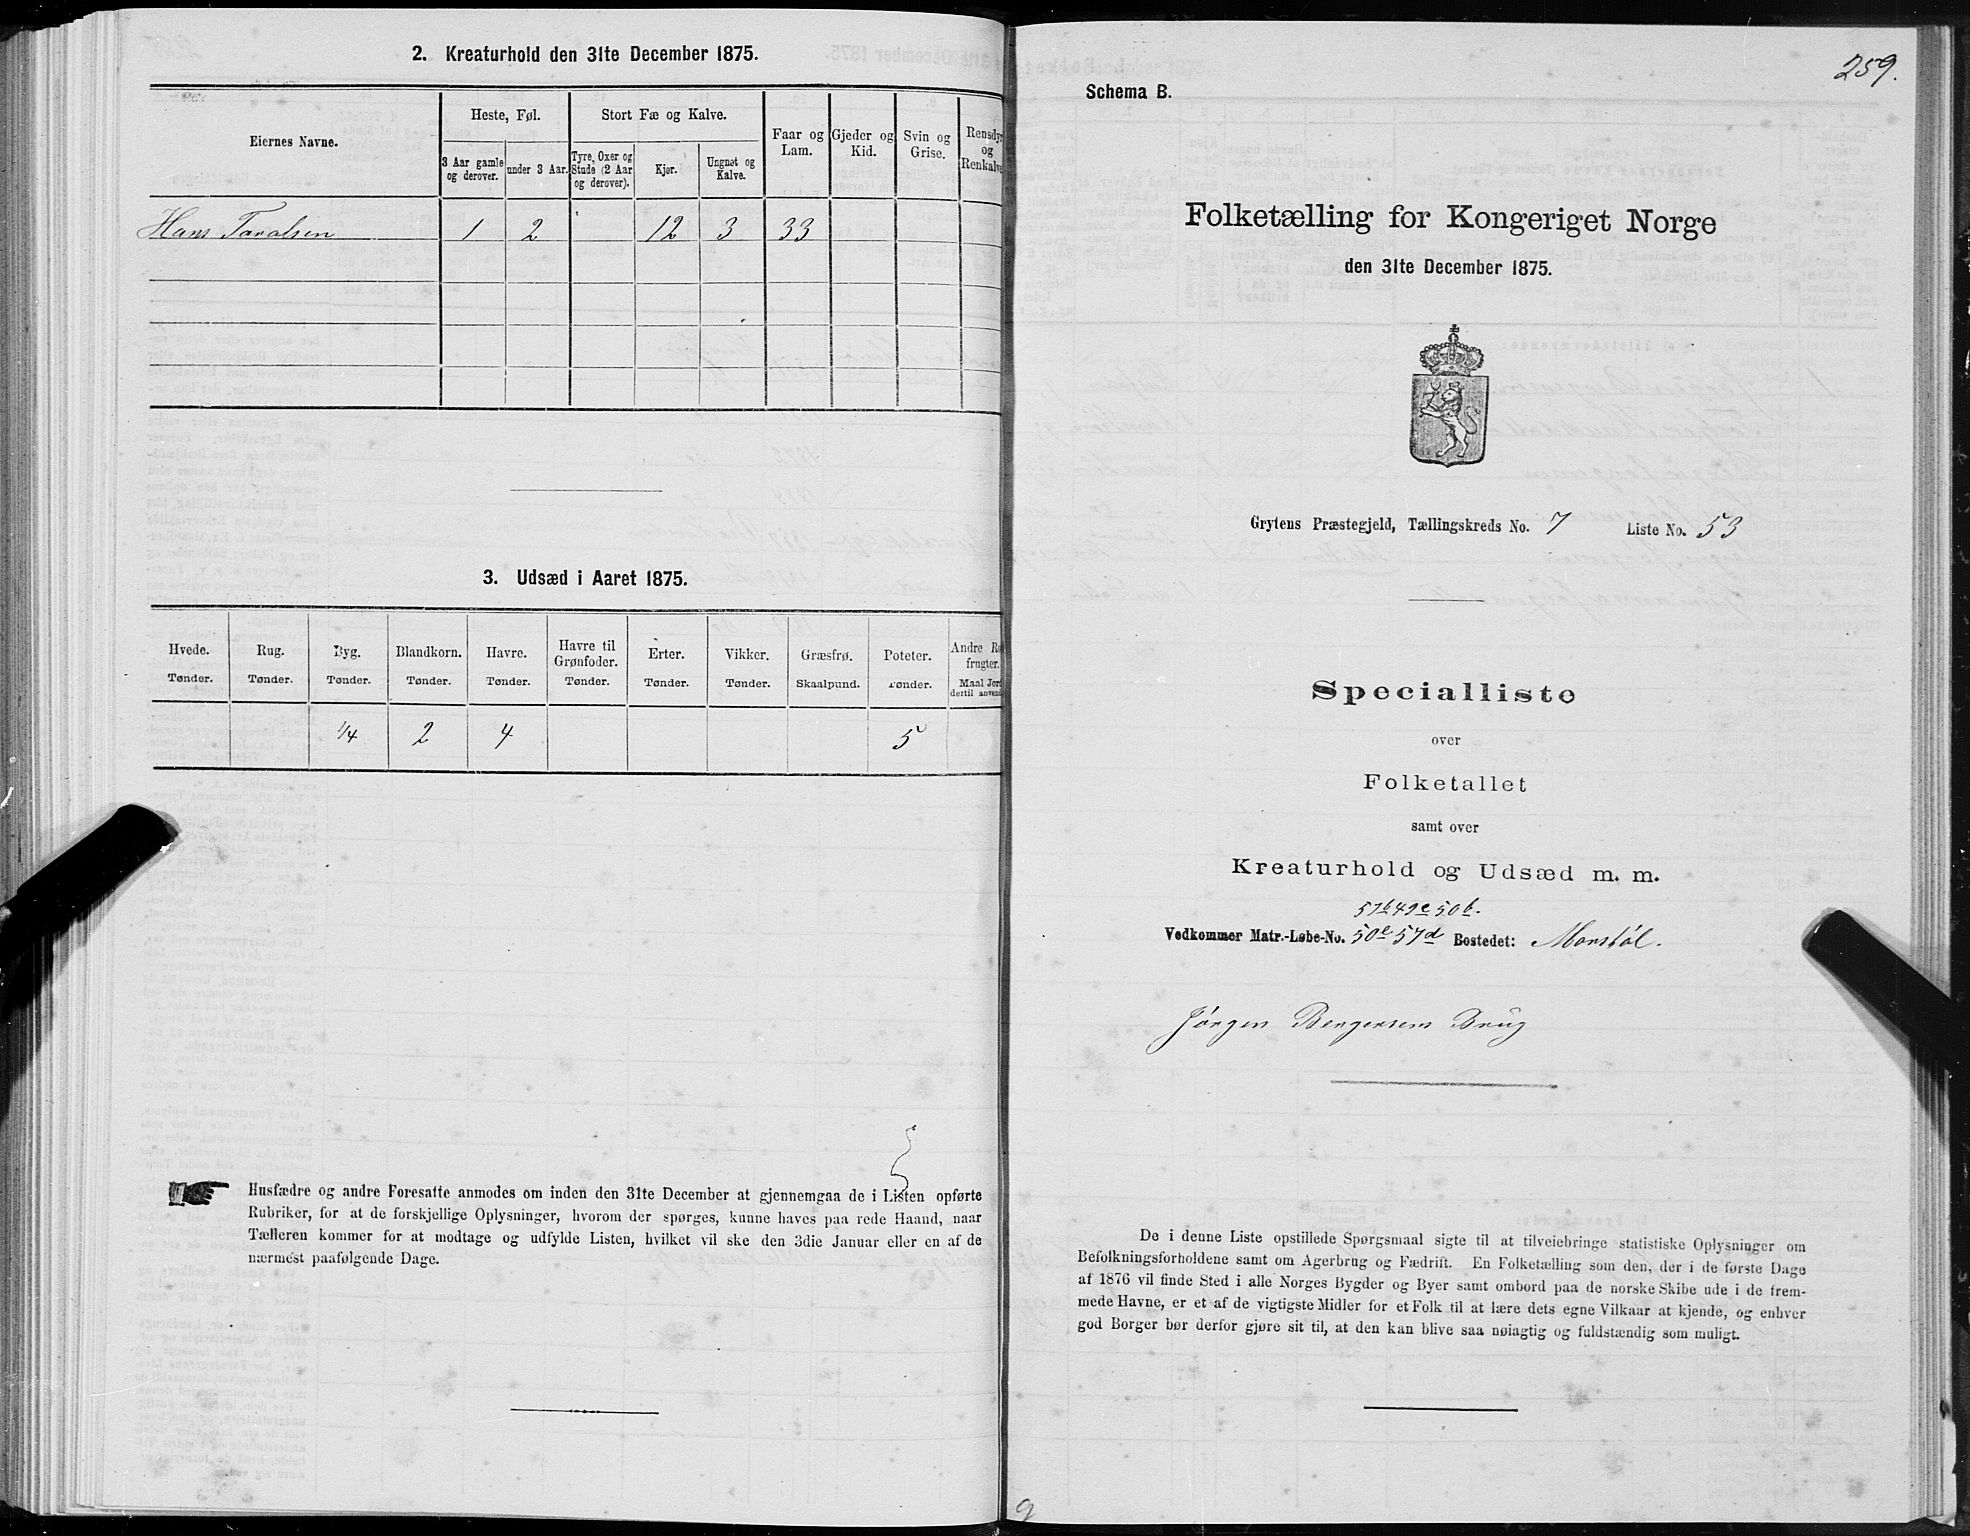 2. Kreaturhold den 31te December 1875.
Eiernes Navne.
Heste, Føl.
3 Aar gamle og derover.
under 3 Aar.
Stort Fæ og Kalve.
Tyre, Oxer og Stude (2 Aar og derover).
Kjør.
Ungnøt og Kalve.
Faar og Lam.
Gjeder og Kid.
Svin og Grise.
Rensdyr og Renkalve
Hans Taralsen 1 2 12 3 33
3. Udsæd i Aaret 1875.
Hvede. Tønder.
Rug. Tønder.
Byg. Tønder.
Blandkorn. Tønder.
Havre. Tønder.
Havre til Grønfoder. Tønder.
Erter. Tønder.
Vikker. Tønder.
Græsfrø. Skaalpund.
Poteter. Tønder.
Andre Ro frugter. Maal Jord dertil anvend
1/4 2 4 5
Husfædre og andre Foresatte anmodes om inden den 31te December at gjennemgaa de i Listen opførte
Rubriker, for at de forskjellige Oplysninger, hvorom der spørges, kunne haves paa rede Haand, naar
Tælleren kommer for at modtage og udfylde Listen, hvilket vil ske den 3die Januar eller en af de
nærmest paafølgende Dage.
259.
Schema B.
Folketælling for Kongeriget Norge
den 31te December 1875.
Grytens Præstegjeld, Tællingskreds No. 7 Liste No. 53
Specialliste
over
Folketallet
samt over
Kreaturhold og Udsæd m. m.
57b 49c 50b.
Vedkommer Matr.-Løbe-No. 50e 57d Bostedet: Monstøl.
Jörgen Bergersens Brug
De i denne Liste opstillede Spørgsmaal sigte til at tilveiebringe statistiske Oplysninger om
Befolkningsforholdene samt om Agerbrug og Fædrift. En Folketælling som den, der i de første Dage
af 1876 vil finde Sted i alle Norges Bygder og Byer samt ombord paa de norske Skibe ude i de frem-
mede Havne, er et af de vigtigste Midler for et Folk til at lære dets egne Vilkaar at kjende, og enhver
god Borger bør derfor gjøre sit til, at den kan blive saa nøiagtig og fuldstændig som muligt.